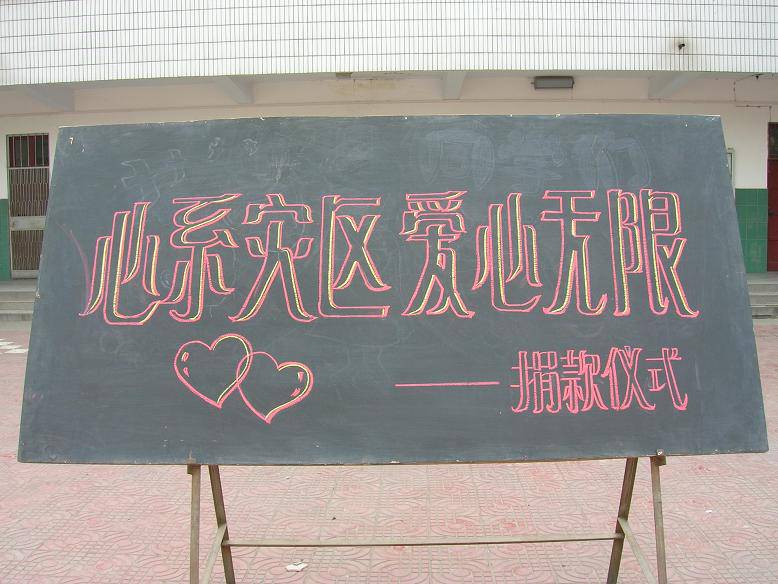 心系灾区 爱心无限
——捐款仪式